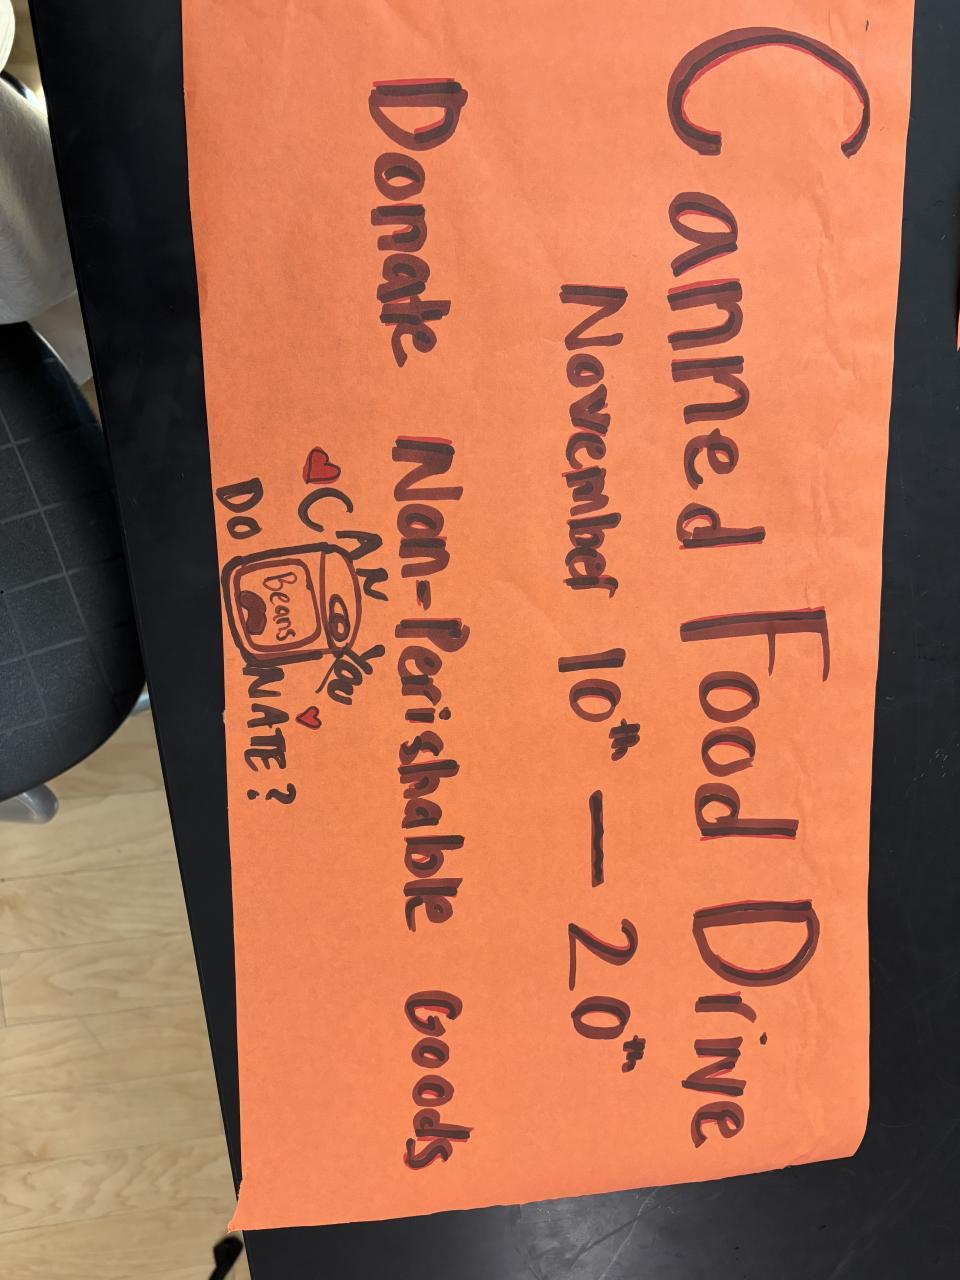 Canned Food Drive
November 10th — 20th
Donate Non-Perishable Goods
CAN You
DO NATE?
Beans